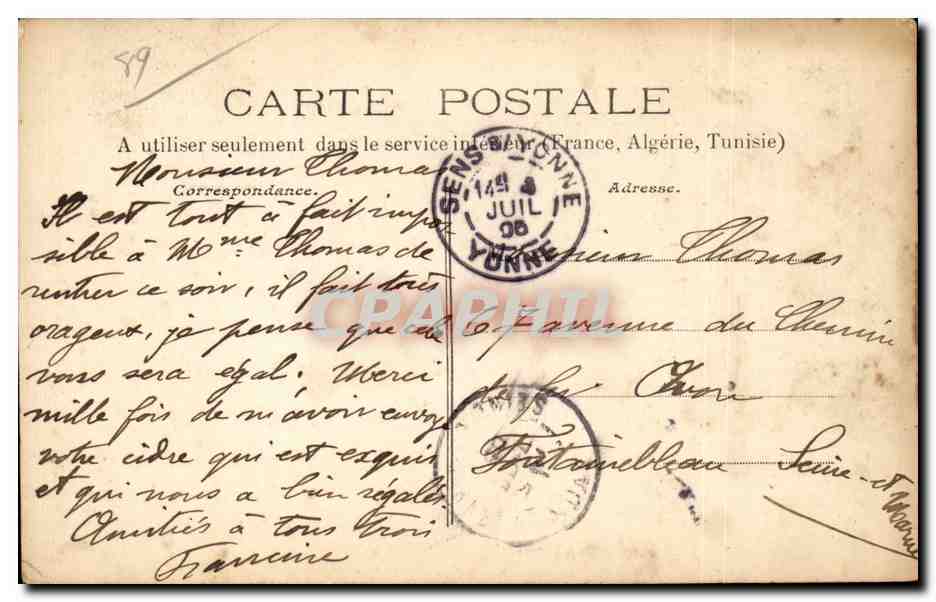 89
CARTE POSTALE
A utiliser seulement dans le service intérieur (France, Algérie, Tunisie)
Monsieur Thomas
Correspondance.
Il est tout à fait impos
sible à Mme Thomas de
rentrer ce soir, il fait très
orageux, je pense que cela
vous sera égal. Merci
mille fois de m'avoir envoyé
votre cidre qui est exquis
et qui nous a bien régalés
Amitiés à tous trois
SENS S/YONNE
JUIL
YONNE
Adresse.
Monsieur Thomas
67 avenue du Chemin
de fer
Fontainebleau Seine-et
Marne
CPAPHIL